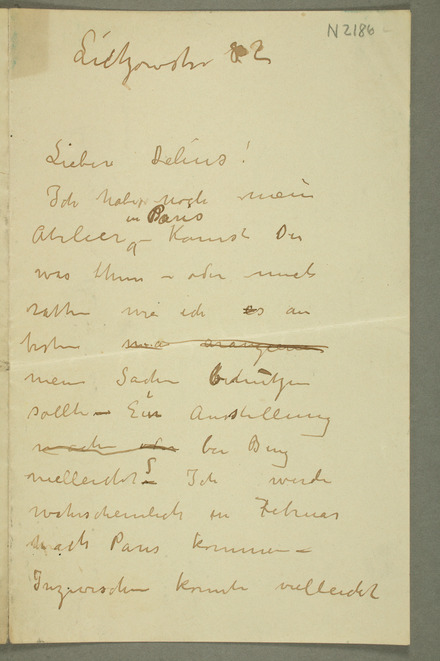 N 2186
Lützowstr 82
Lieber Delius!
Ich habe noch mein
in Paris
Atelier – Kannst Du
was thun – oder mich
rathen wie ich es am
besten
meine Sachen
sollte – Ein Ausstellung
bei Bing
vielleicht? – Ich werde
wahrscheinlich in Februar
nach Paris kommen –
Inzwischen konnte vielleicht